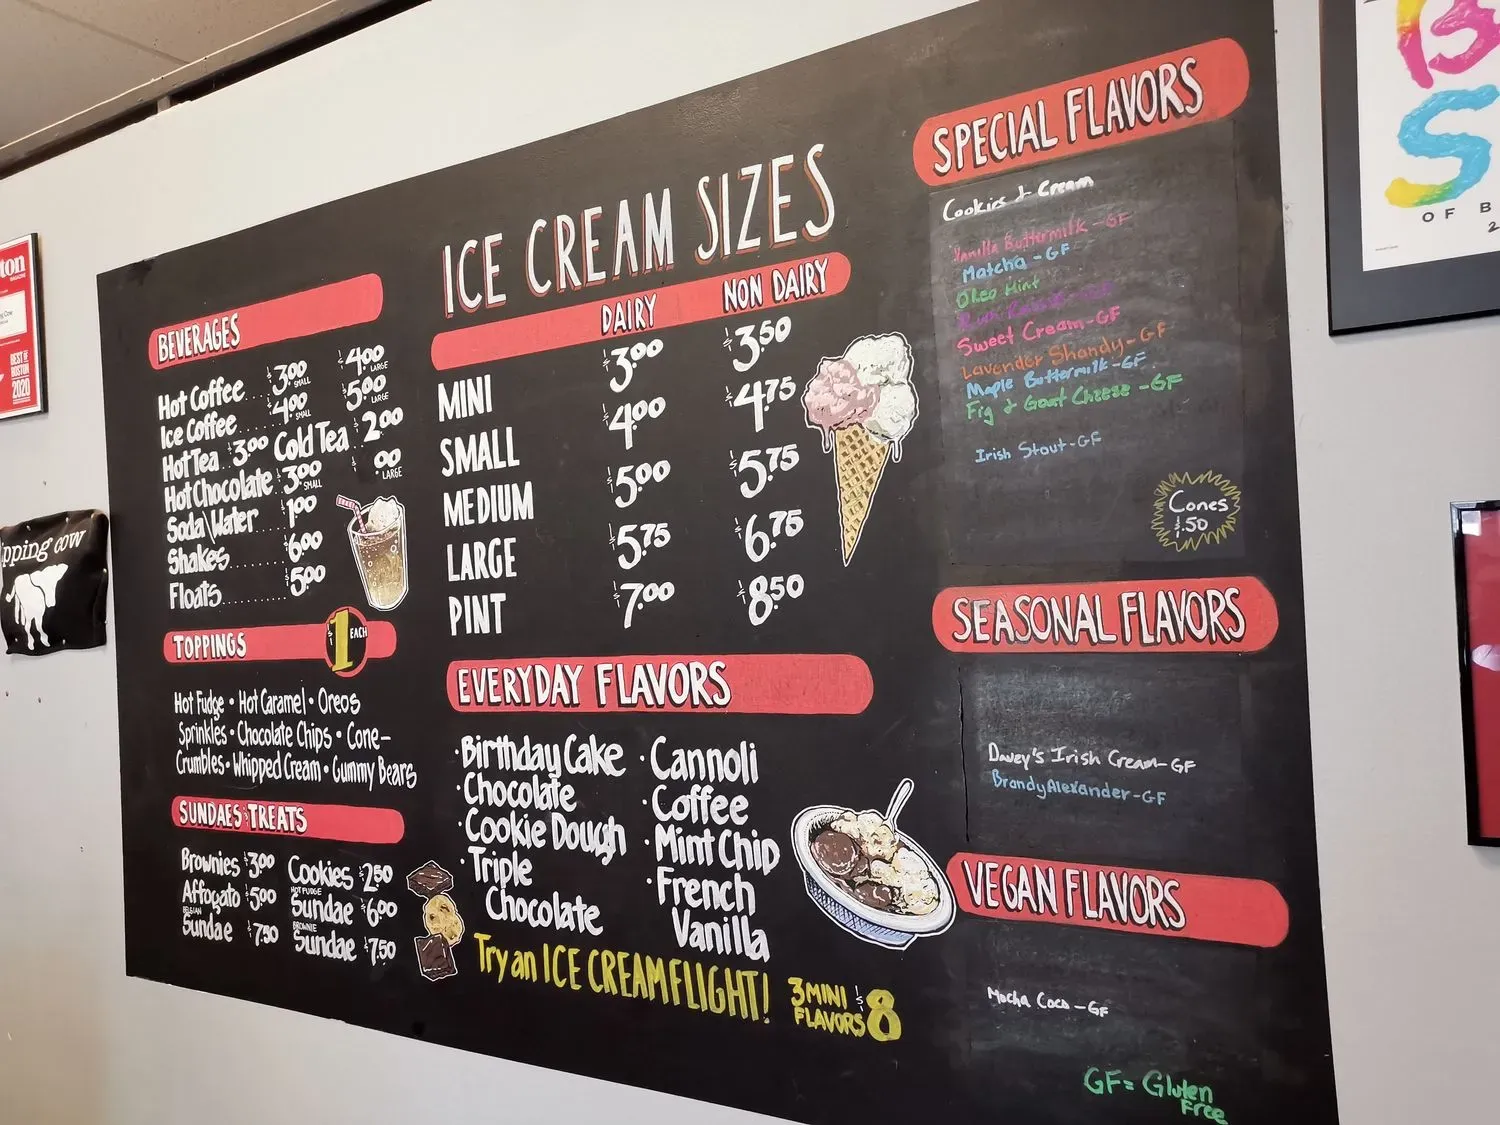 BEVERAGES
Hot Coffee $3.00 SMALL $4.00 LARGE
Ice Coffee $4.00 SMALL $5.00 LARGE
Hot Tea $3.00 Cold Tea $2.00
Hot Chocolate $3.00 SMALL $ .00 LARGE
Soda\Water $1.00
Shakes $6.00
Floats $5.00
TOPPINGS $1 EACH
Hot Fudge • Hot Caramel • Oreos
Sprinkles • Chocolate Chips • Cone-
Crumbles • Whipped Cream • Gummy Bears
SUNDAES & TREATS
Brownies $3.00 Cookies $2.50
Affogato $5.00 HOT FUDGE Sundae $6.00
BELGIAN Sundae $7.50 BROWNIE Sundae $7.50
ICE CREAM SIZES
DAIRY NON DAIRY
MINI $3.00 $3.50
SMALL $4.00 $4.75
MEDIUM $5.00 $5.75
LARGE $5.75 $6.75
PINT $7.00 $8.50
EVERYDAY FLAVORS
• Birthday Cake
• Chocolate
• Cookie Dough
• Triple
Chocolate
• Cannoli
• Coffee
• Mint Chip
• French
Vanilla
Try an ICE CREAM FLIGHT! 3 MINI FLAVORS $8
SPECIAL FLAVORS
Cookies & Cream
Vanilla Buttermilk - GF
Matcha - GF
Oreo Mint
Sweet Cream - GF
Lavender Shandy - GF
Maple Buttermilk - GF
Fig & Goat Cheese - GF
Irish Stout - GF
Cones
$.50
SEASONAL FLAVORS
Davey's Irish Cream - GF
Brandy Alexander - GF
VEGAN FLAVORS
Mocha Coco - GF
GF = Gluten
Free
pping cow
ton
BEST OF
BOSTON
2020
B
S
OF B